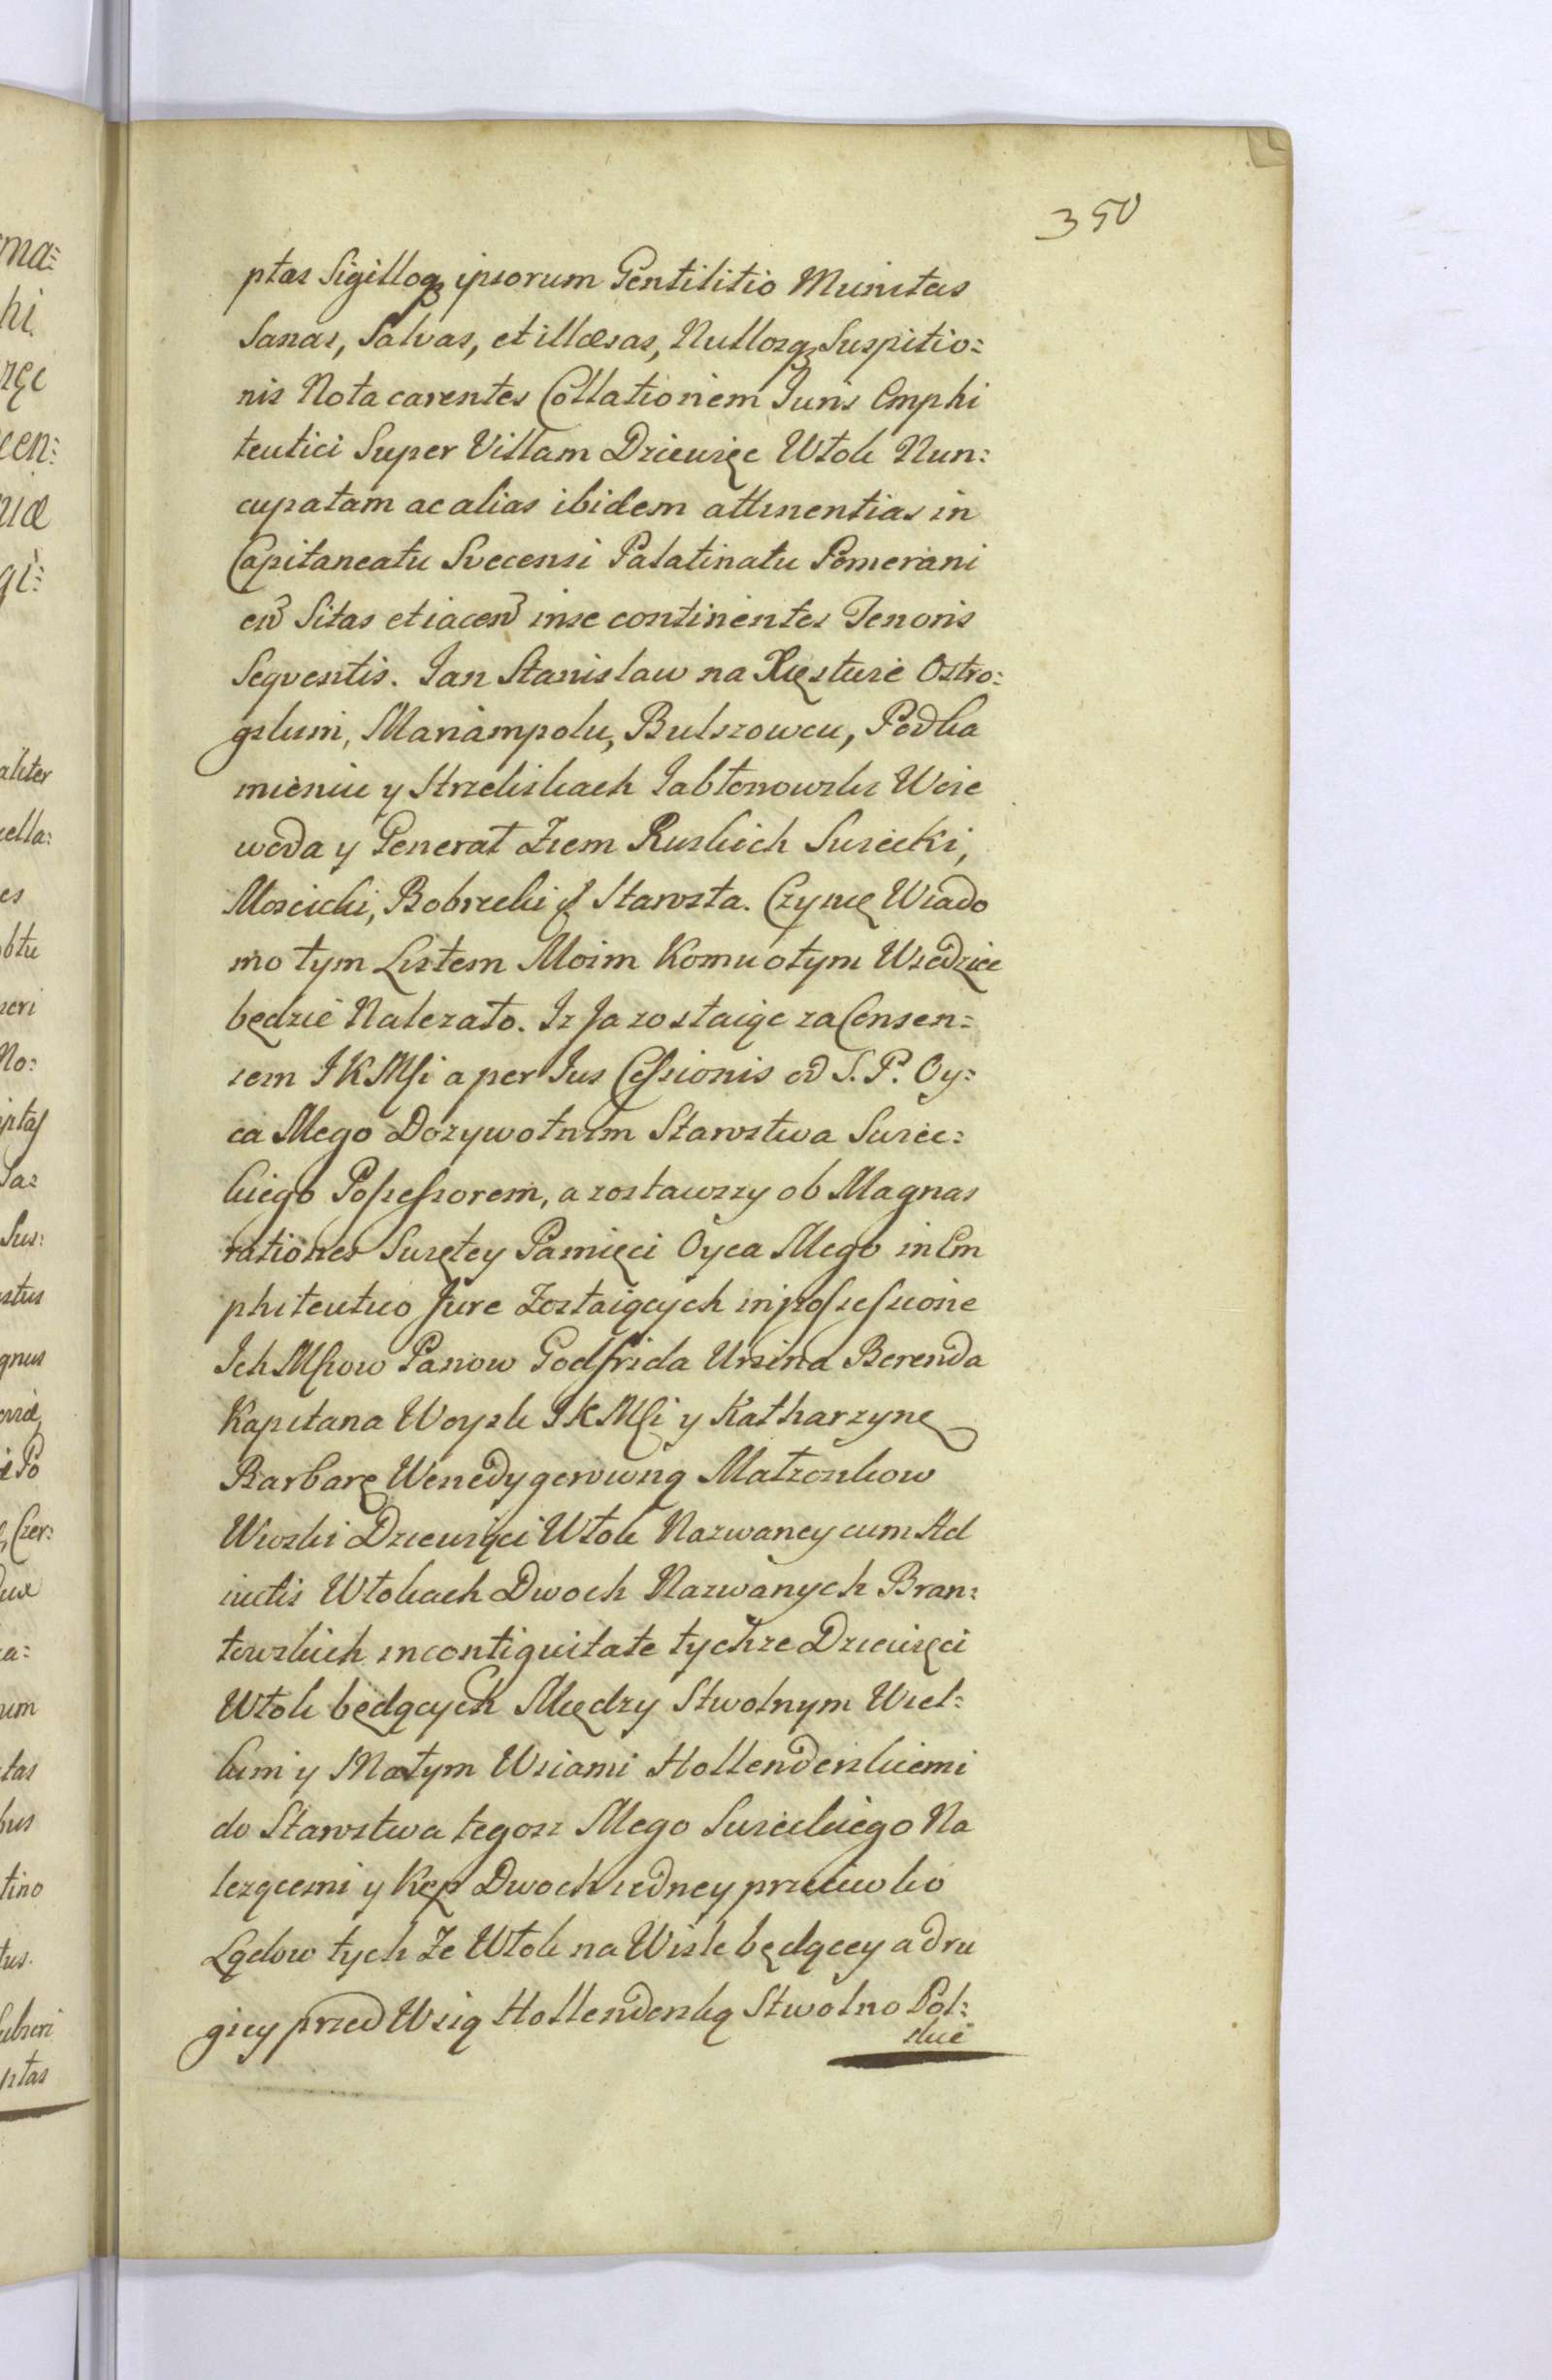 350
ptas Sigilloq3 ipsorum Gentilitio Munitas
Sanas, Salvas, et illæsas, Nullosq3 Suspitio=
nis Nota carentes Collationem Juris Emphi
teutici Super Villam Dziewięc Włok Nun=
cupatam ac alias ibidem attinentias in
Capitaneatu Svecensi Palatinatu Pomerani
en̄ Sitas et iacen̄ in se continentes Tenoris
Seqventis. Jan Stanislaw na Xięstwie Ostro=
gskim, Mariampolu, Bulszowcu, Podka
mieniu y Strzeliskach Jabłonowski Woie
woda y Generał Ziem Ruskich Swiecki,
Moscicki, Bobrzecki & Starosta. Czynię Wiado
mo tym Listem Moim Komu o tym Wiedziec
będzie Nalezało. Iz Ja zostaiąc za Consen=
sem JKMsci a per Ius Cessionis od S. P. Oy=
ca Mego Dozywotnim Starostwa Swiec=
kiego Possessorem, a zostawszy ob Magnas
rationes Swiętey Pamięci Oyca Mego in Em
phiteutico Jure Zostaiących in possessione
Ich Msciow Panow Godfrida Ursina Berenda
Kapitana Woysk JKMsci y Katharzynę
Barbarę Wenedygerowną Małzonkow
Wioski Dziewięci Włok Nazwaney cum Ad
iuctis Włokach Dwoch Nazwanych Bran=
towskich in contiguitate tychze Dziewięci
Włok będących Między Stwolnym Wiel=
kim y Małym Wsiami Hollenderskiemi
do Starostwa tegosz Mego Swieckiego Na
lezącemi y Kęp Dwoch iedney przeciwko
Lądow tych ze Włok na Wisle będącey a dru
giey przed Wsią Hollenderską Stwolno Pol=
skie